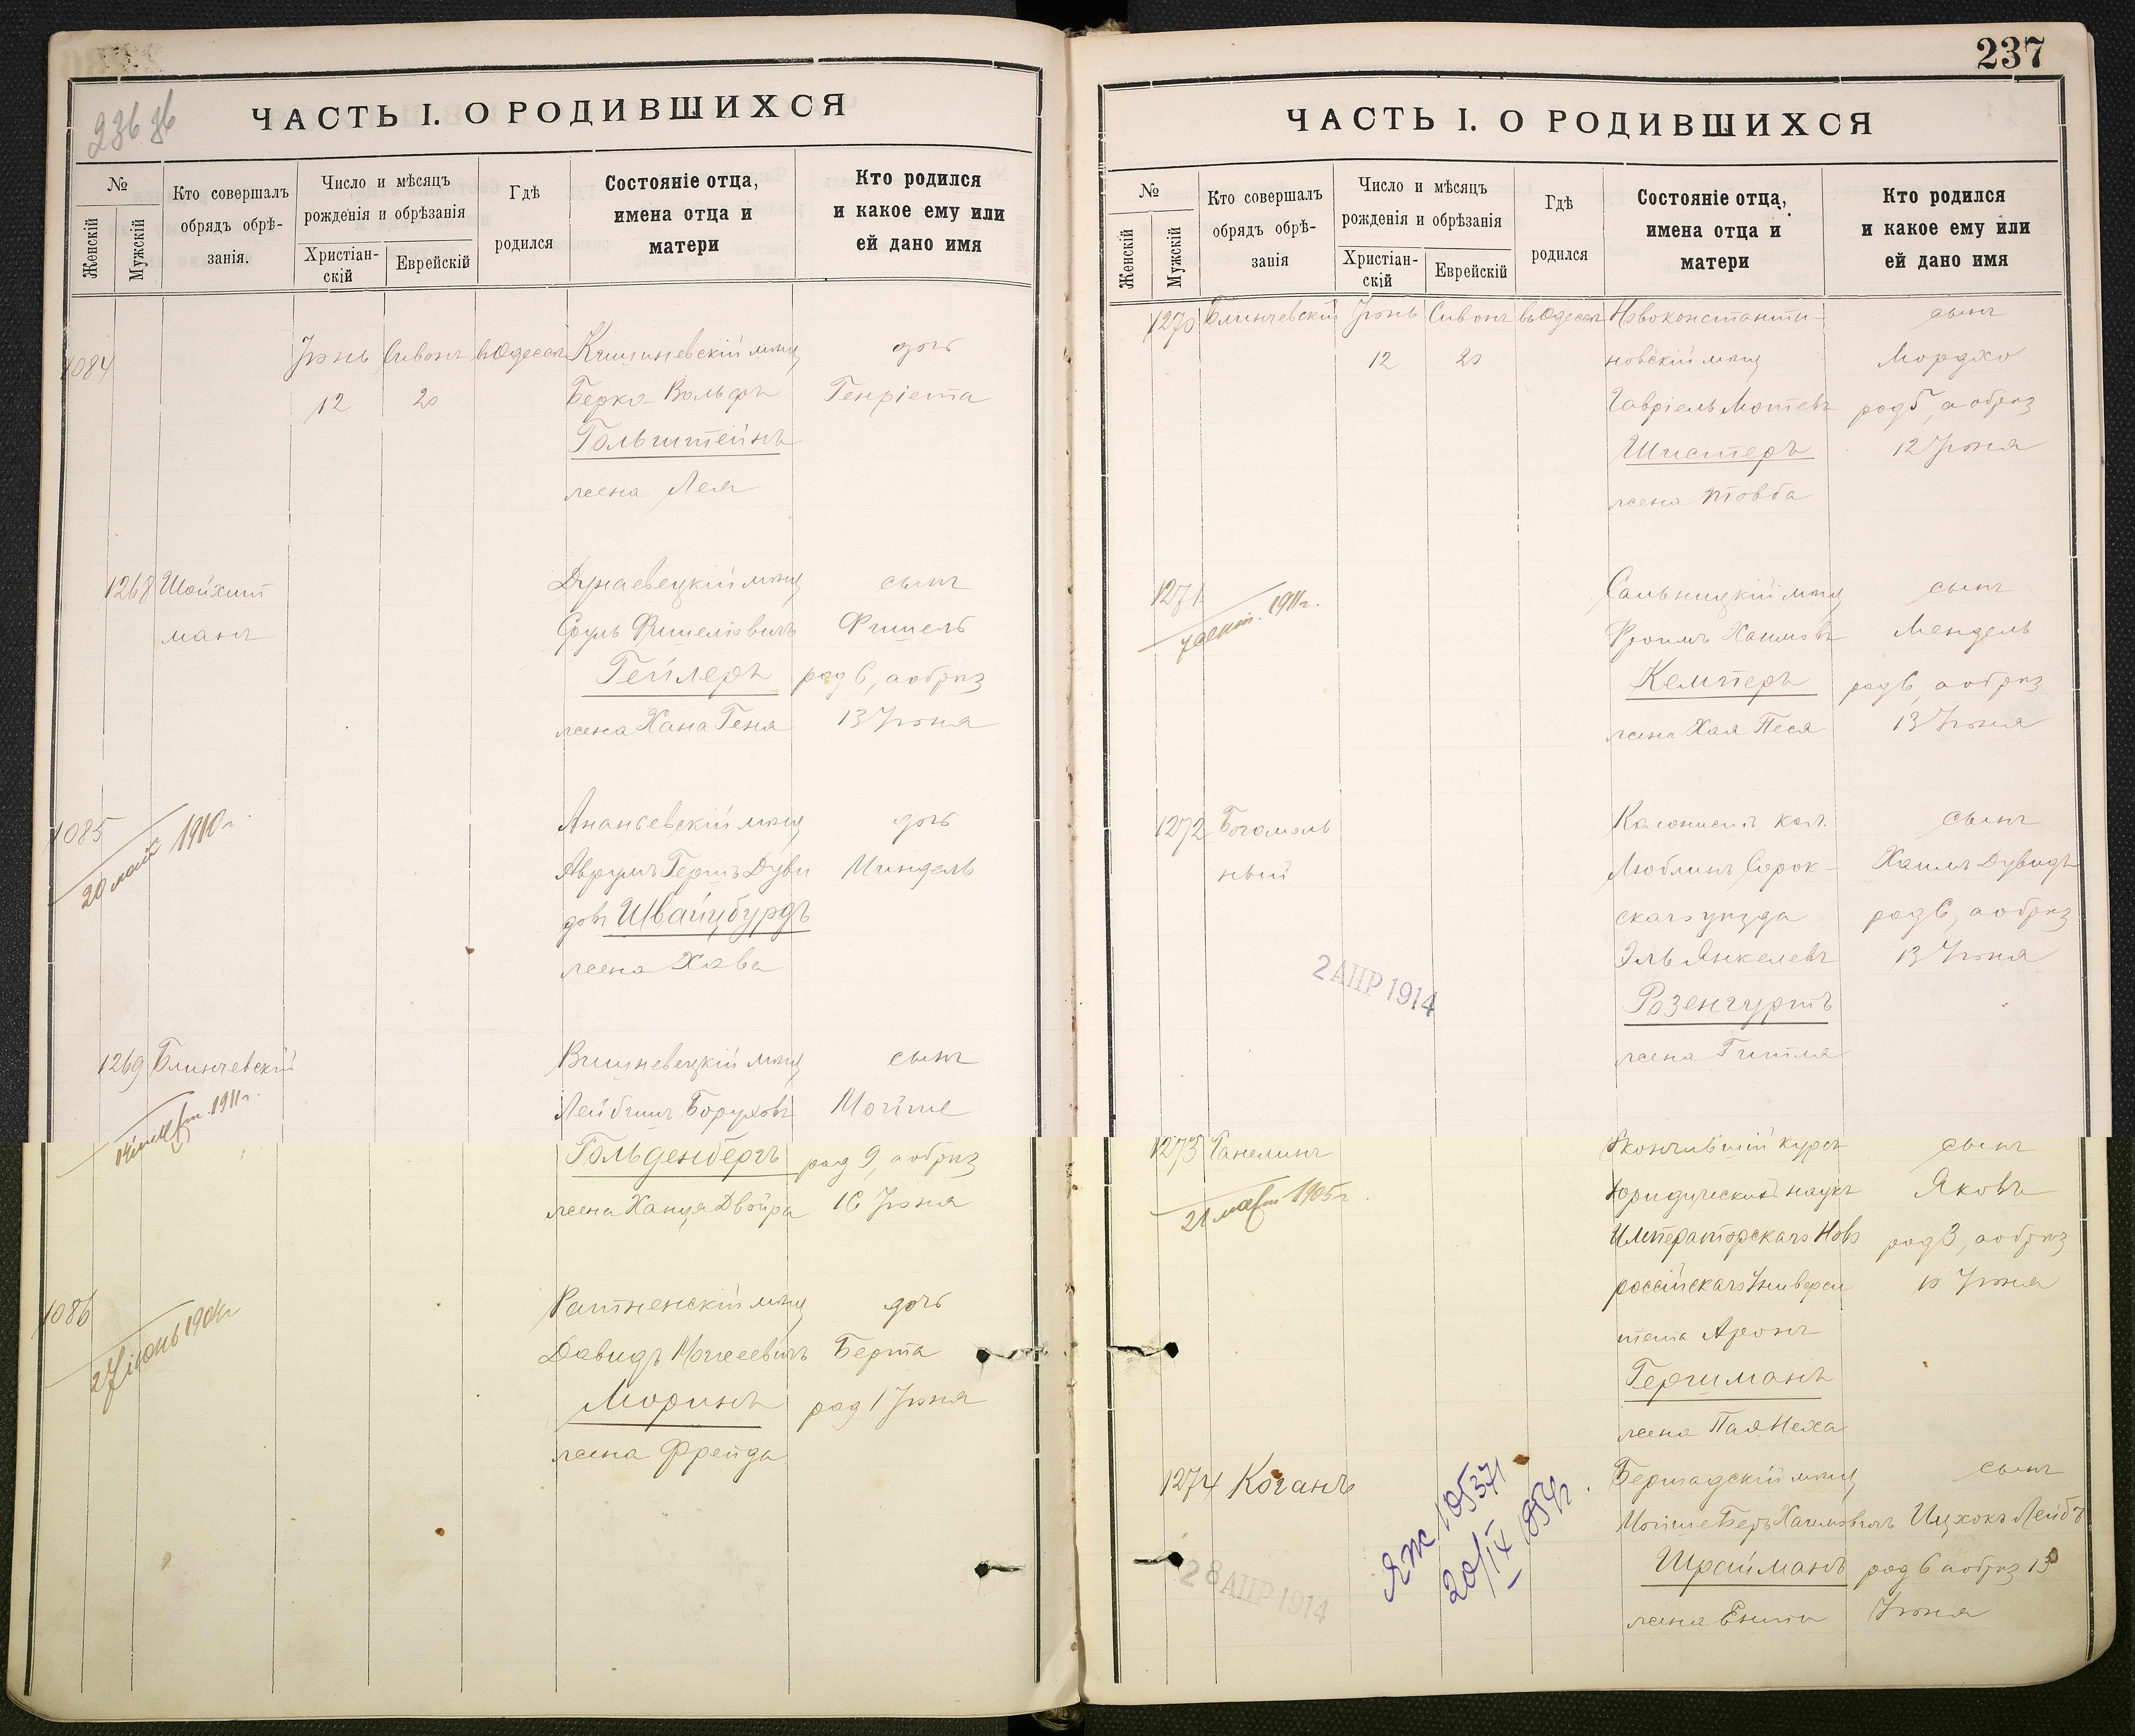 236 зб
ЧАСТЬ I. О РОДИВШИХСЯ
№
Женскій
Мужскій
Кто совершалъ
обрядъ обрѣ-
занія.
Число и мѣсяцъ
рожденія и обрѣзанія
Христіан-
скій
Еврейскій
Гдѣ
родился
Состояніе отца,
имена отца и
матери
Кто родился
и какое ему или
ей дано имя
1084
Іюнь Сивонъ въ Одессѣ Кишиневскій мѣщ дочь
12 20 Берко-Вольфъ Генріета
Гольдштейнъ
жена Лея
1268 Шойхит Дунаевецкій мѣщ сынъ
манъ Сруль Фишелевичъ Фишель
Гейлеръ род 6, а обрѣз
жена Хана Геня 13 Іюня
1085 Ананьевскій мѣщ дочь
20 май 1910 г. Аврумъ Гершъ Дуви Миндель
довъ Швайцбурдъ
жена Хава
1269 Блинчевскій Вишневецкій мѣщ сынъ
1911 г. Лейбишъ Боруховъ Мойше
Гольденбергъ род 9, а обрѣз
жена Ханця Двойра 16 Іюня
1086 Ратненскій мѣщ дочь
27 іюнь 1904 г Давидъ Моисеевичъ Берта
Моринъ род 1 Іюня
жена Фрейда
237
ЧАСТЬ I. О РОДИВШИХСЯ
№
Женскій
Мужскій
Кто совершалъ
обрядъ обрѣ-
занія
Число и мѣсяцъ
рожденія и обрѣзанія
Христіан-
скій
Еврейскій
Гдѣ
родился
Состояніе отца,
имена отца и
матери
Кто родился
и какое ему или
ей дано имя
1270 Блинчевскій Іюнь Сивонъ въ Одессѣ Новоконстанти- сынъ
12 20 новскій мѣщ Мордхо
Гавріель Мотевъ род 5, а обрѣз
Шистеръ 12 Іюня
жена Товба
1271 Сальницкій мѣщ сынъ
1911 г. Фроимъ Хаимовъ Мендель
Кемперъ род 6, а обрѣз
жена Хая Песя 13 Іюня
1272 Богомоль Колонистъ кол. сынъ
ный Люблинъ Сорок- Хаимъ Дувидъ
скаго уѣзда род 6, а обрѣз
Эль Янкелевъ 13 Іюня
2 АПР 1914
Розенгуртъ
жена Гитля
1273 Ганелинъ Окончившій курсъ сынъ
21 1905 г. юридическихъ наукъ Яковъ
Императорскаго Ново род 3, а обрѣз
россійскаго Универси 10 Іюня
тета Аронъ
Гершманъ
жена Пая Неха
1274 Коганъ Бершадскій мѣщ сынъ
ЯЖ 105371
20/IX 1954 г.
Мойше Беръ Хаимовичъ Ицхокъ Лейбъ
Шрайманъ род 6 а обрѣз 13
28 АПР 1914
жена Енита Іюня